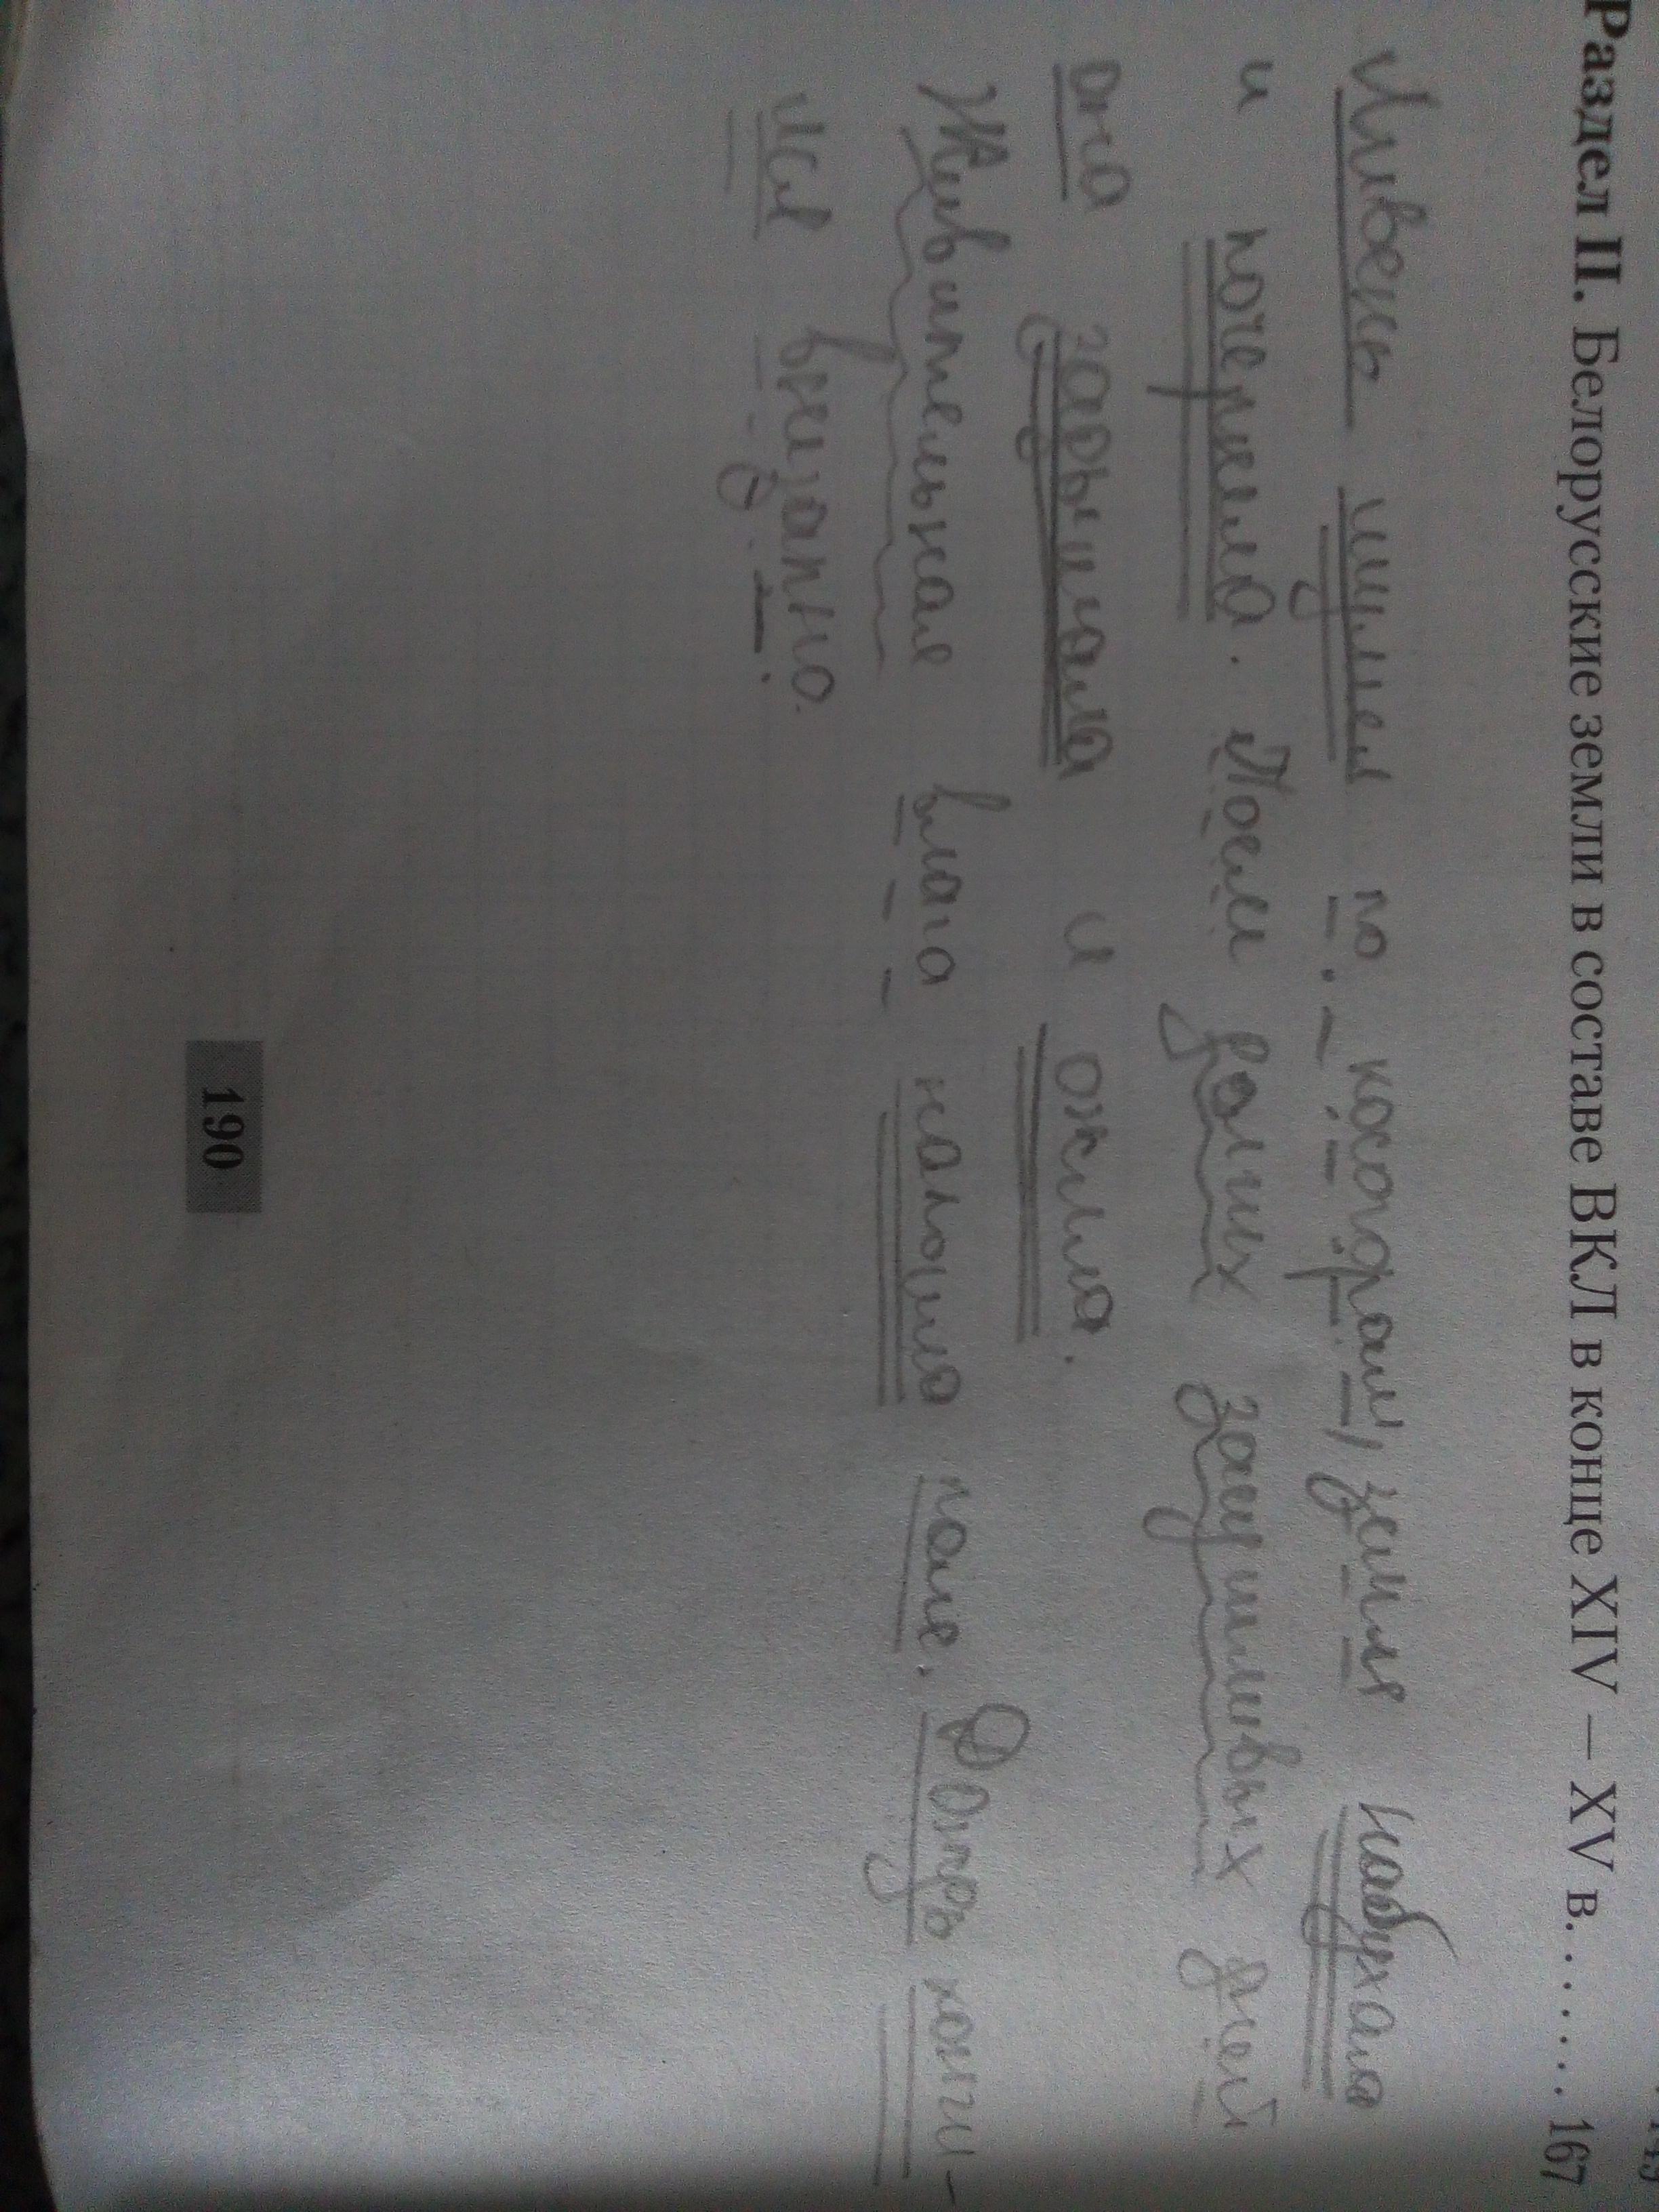 Раздел II. Белорусские земли в составе ВКЛ в конце XIV – XV в. . . . . . . 167
Ливень шумел по косограм, земля набухала
и почернела. После долгих засушливых дней
она задышала и ожила.
Живительная влага напоила поле. Дождь кончи-
лся внезапно.
190